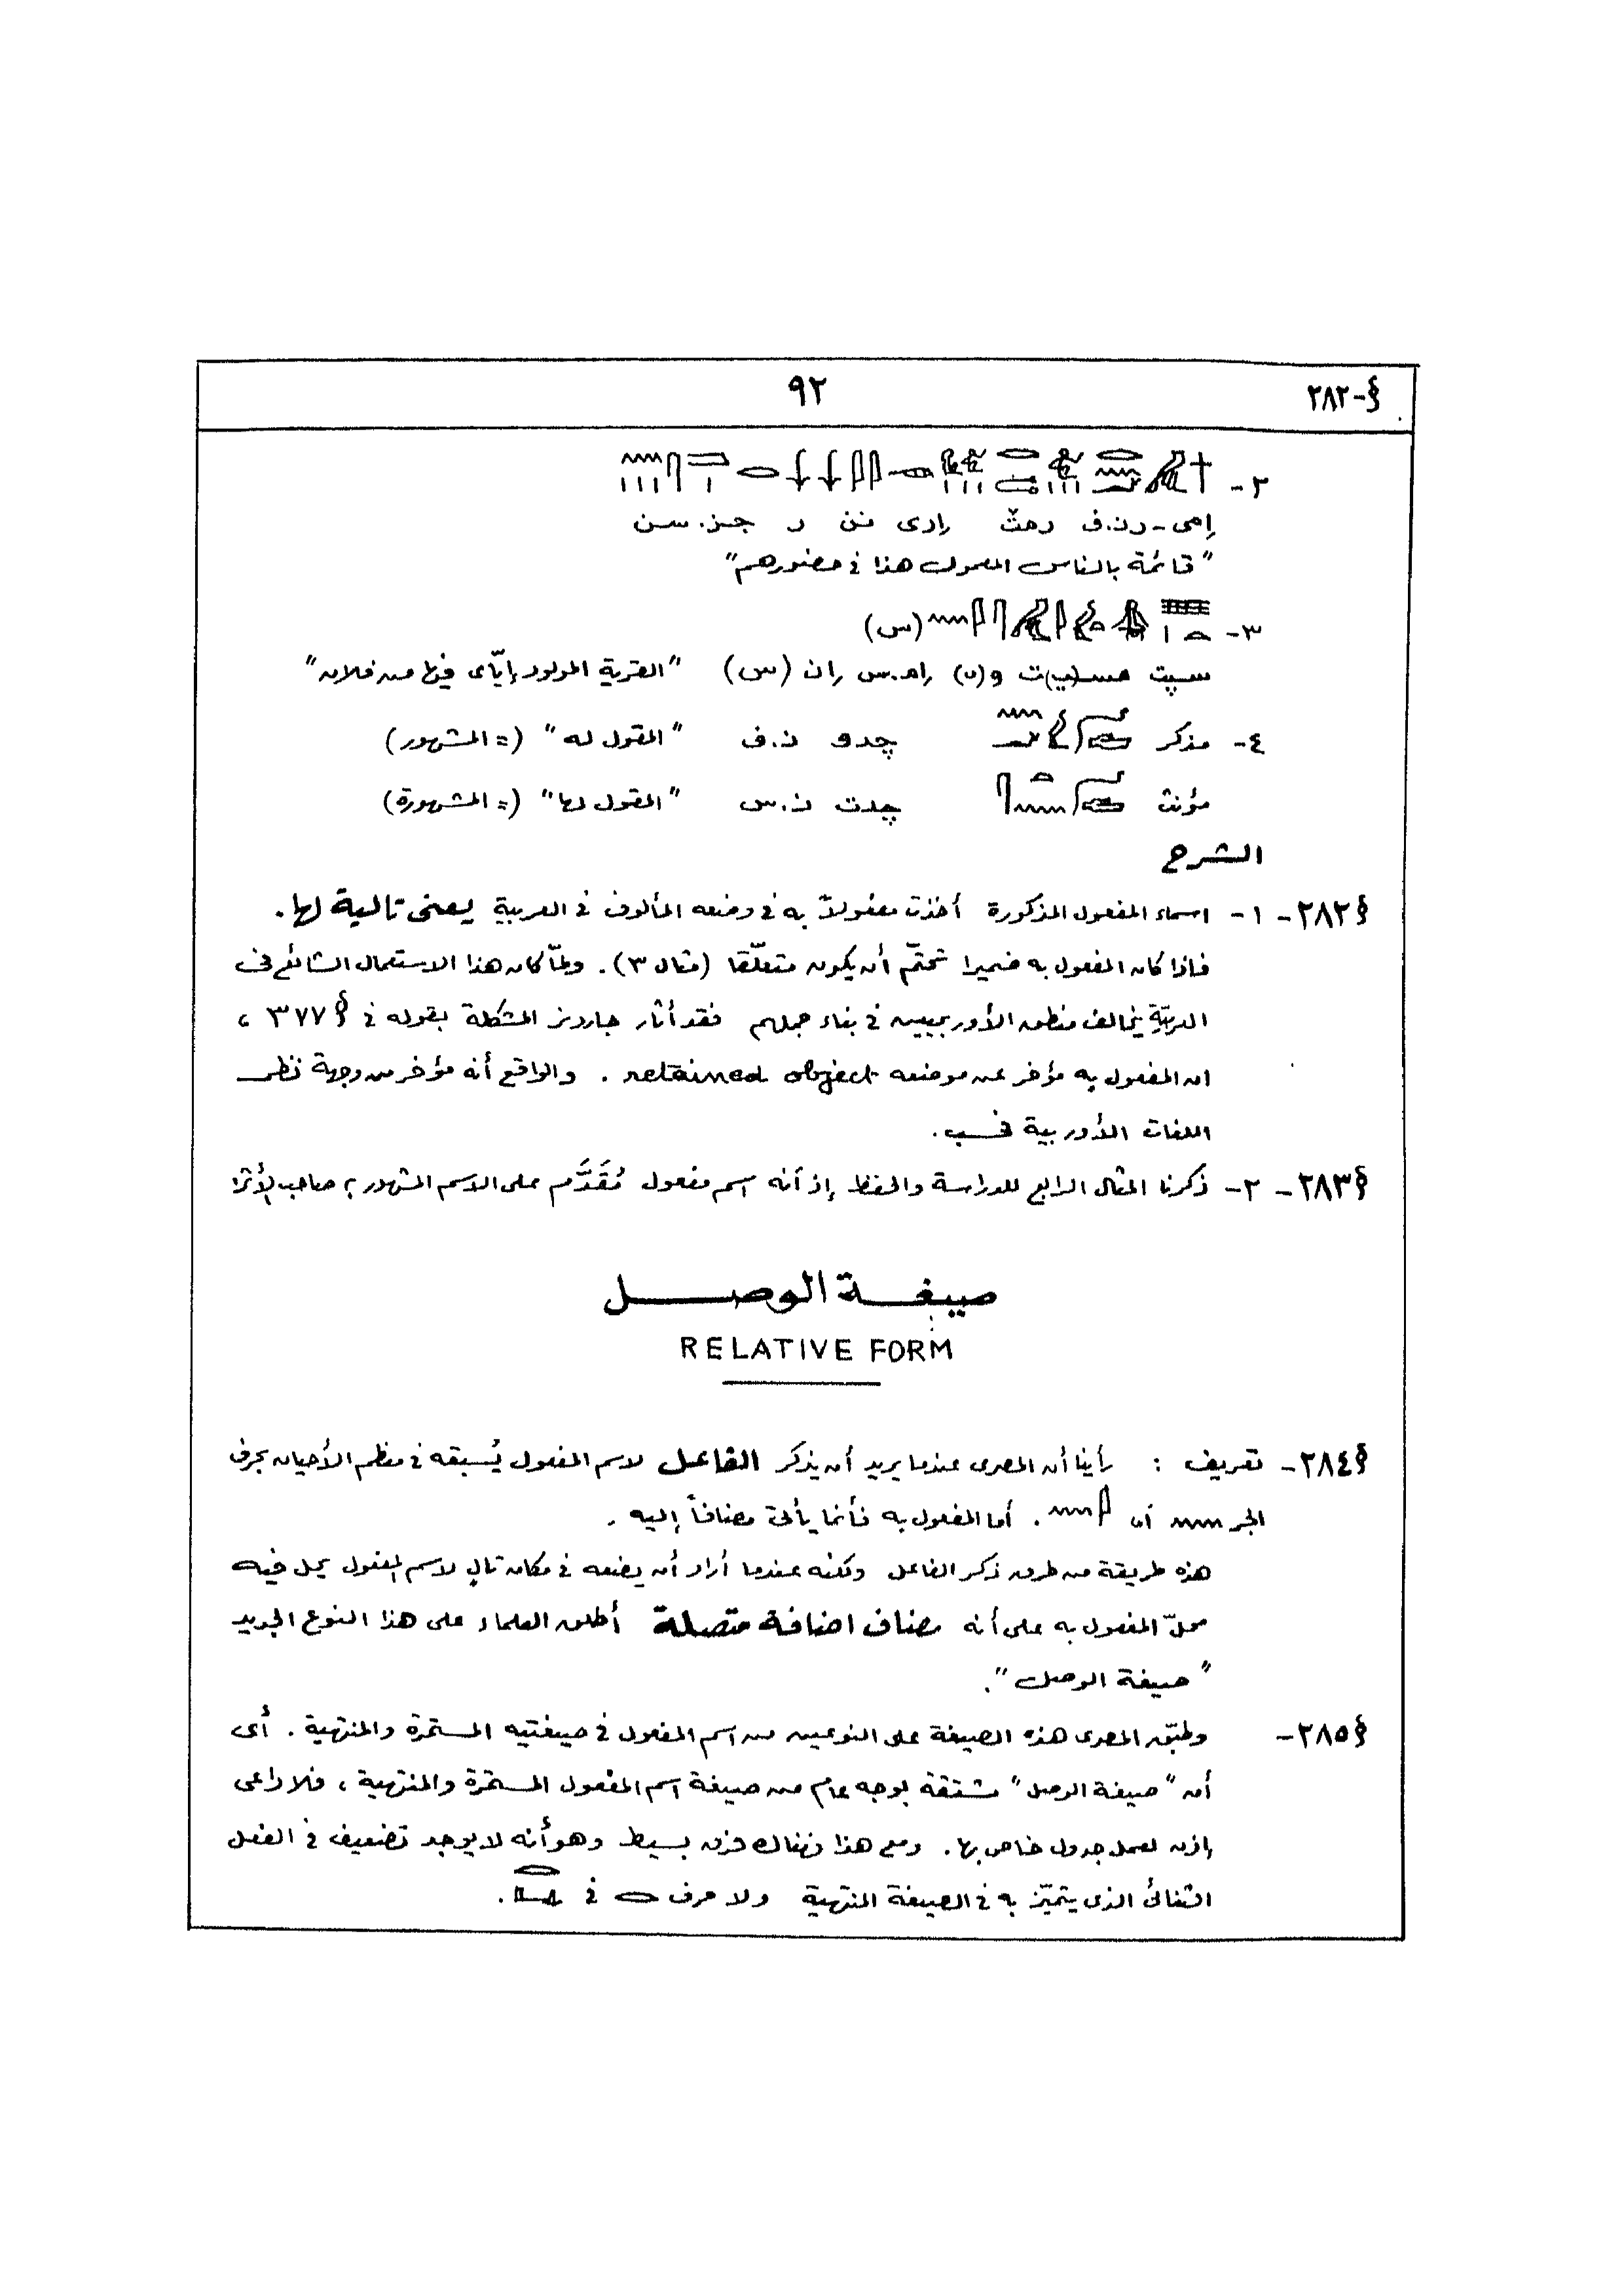 §-٢٨٢
٩٢
٢-
إمى-رن.ف رمث إرى نن ر جز.سن
"قائمة بالناس المعمول هذا فى حضورهم"
٣- (س)
سپت مس(ي)ت و(ى) إم.س إن (س) "القرية المولود إيّاى فيها من فلان"
٤- مذكر چدو ن.ف "المقول له" (= المشهور)
مؤنث چدت ن.س "المقول لها" (= المشهورة)
الشرح
§٢٨٢- ١- اسماء المفعول المذكورة أخذت مفعولاً به فى وضعه المألوف فى العربية يعنى تالية لها.
فاذا كان المفعول به ضميرا تحتّم أن يكون متعلّقا (مثال ٣). ولمّا كان هذا الاستعمال الشائع فى
العربيّة يخالف منطق الأوربيين فى بناء جملهم فقد أثار جاردنر المشكلة بقوله فى §٣٧٧،
ان المفعول به مؤخر عن موضعه retained object. والواقع أنه مؤخر من وجهة نظر
اللغات الأوربية فحسب.
§٢٨٣- ٢- ذكرنا المثال الرابع للدراسة والحفظ إذ أنه اسم مفعول مُقَدَّم على الاسم المشهور به صاحب الأثر
صيغة الوصل
RELATIVE FORM
§٢٨٤- تعريف : رأينا أن المصرى عندما يريد أن يذكر الفاعل لاسم المفعول يُسبقه فى معظم الأحيان بحرف
الجر أو . أما المفعول به فأنما يأتى مضافاً إليه.
هذه طريقة من طرق ذكر الفاعل ولكنه عندما أراد أن يضعه فى مكان تالٍ لاسم المفعول يحل فيه
محلّ المفعول به على أنه مضاف اضافة متصلة أطلق العلماء على هذا النوع الجديد
"صيغة الوصل".
§٢٨٥- وطبّق المصرى هذه الصيغة على النوعين من اسم المفعول فى صيغتيه المستمرة والمنتهية. أى
أن "صيغة الوصل" مشتقة بوجه عام من صيغة اسم المفعول المستمرة والمنتهية، فلا داعى
إذن لعمل جدول خاص بها. ومع هذا فهناك فرق بسيط وهو أنه لا يوجد تضعيف فى الفعل
الثنائى الذى يتميّز به فى الصيغة المنتهية ولا حرف فى .